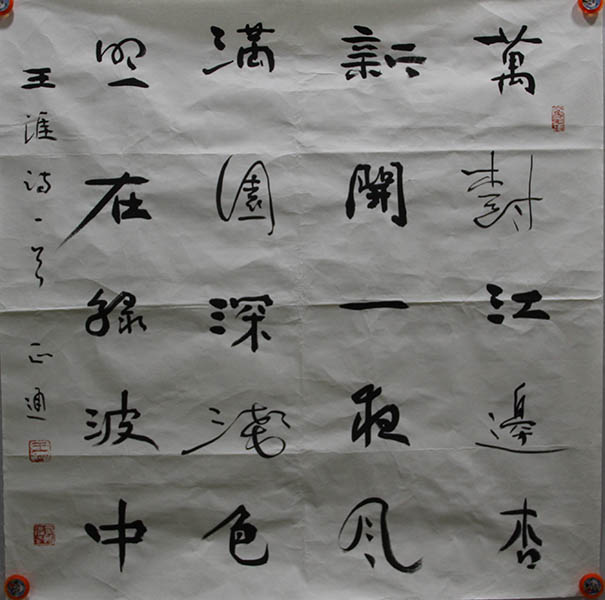 萬樹江邊杏
新開一夜風
滿園深淺色
照在綠波中
王涯詩一首 正通